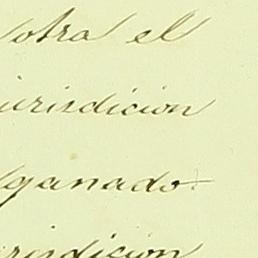 otra el
jurisdicion
ganado
jurisdicion